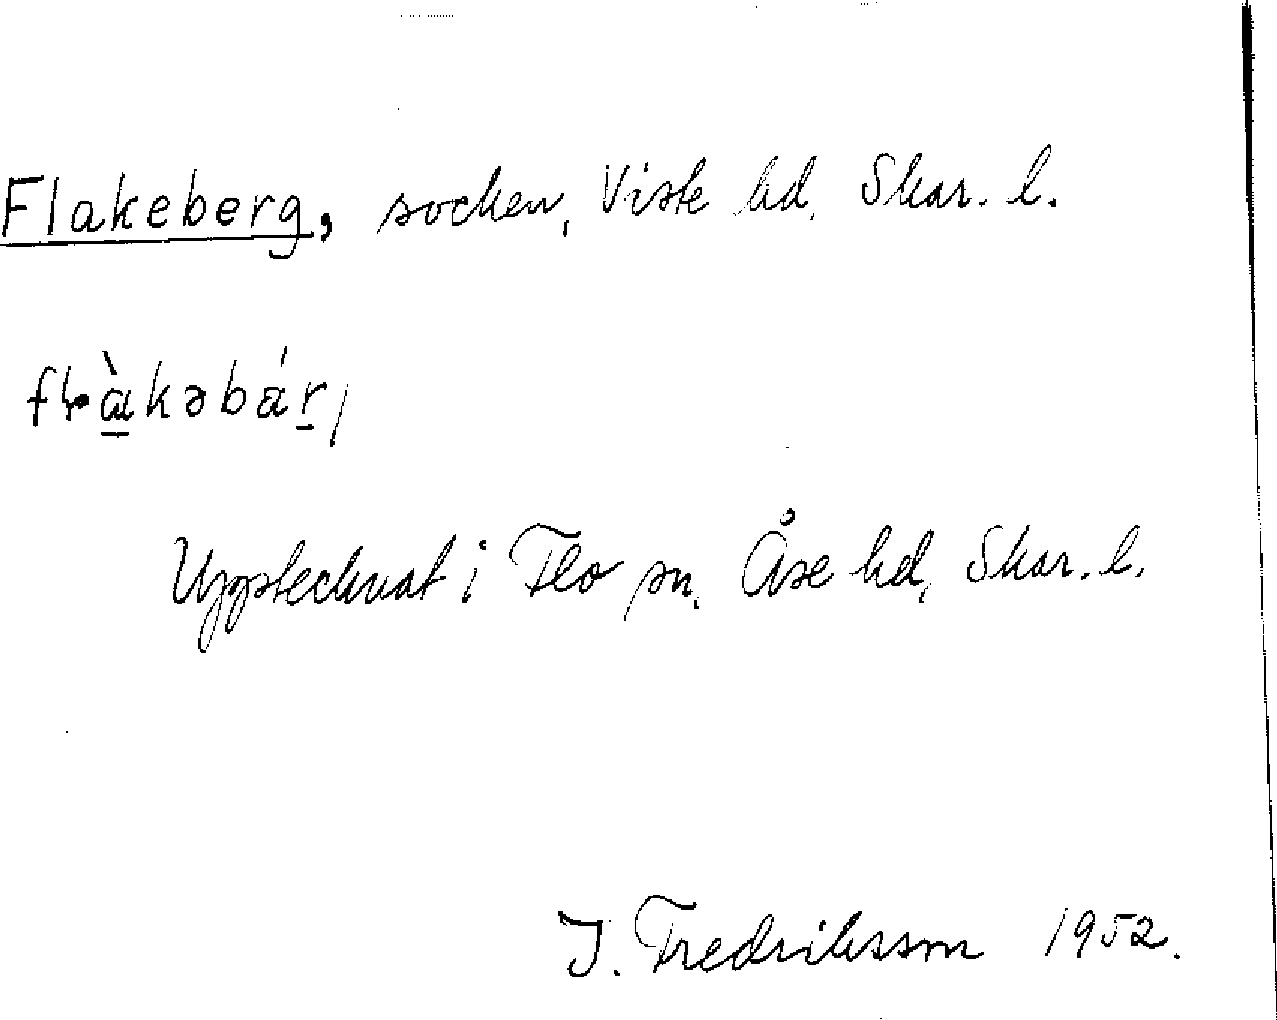 Flakeberg, socken, Viste hd, Skar. l.
fɫàkəbár,
Upptecknat i Flo sn, Åse hd, Skar. l.
J. Fredriksson 1952.